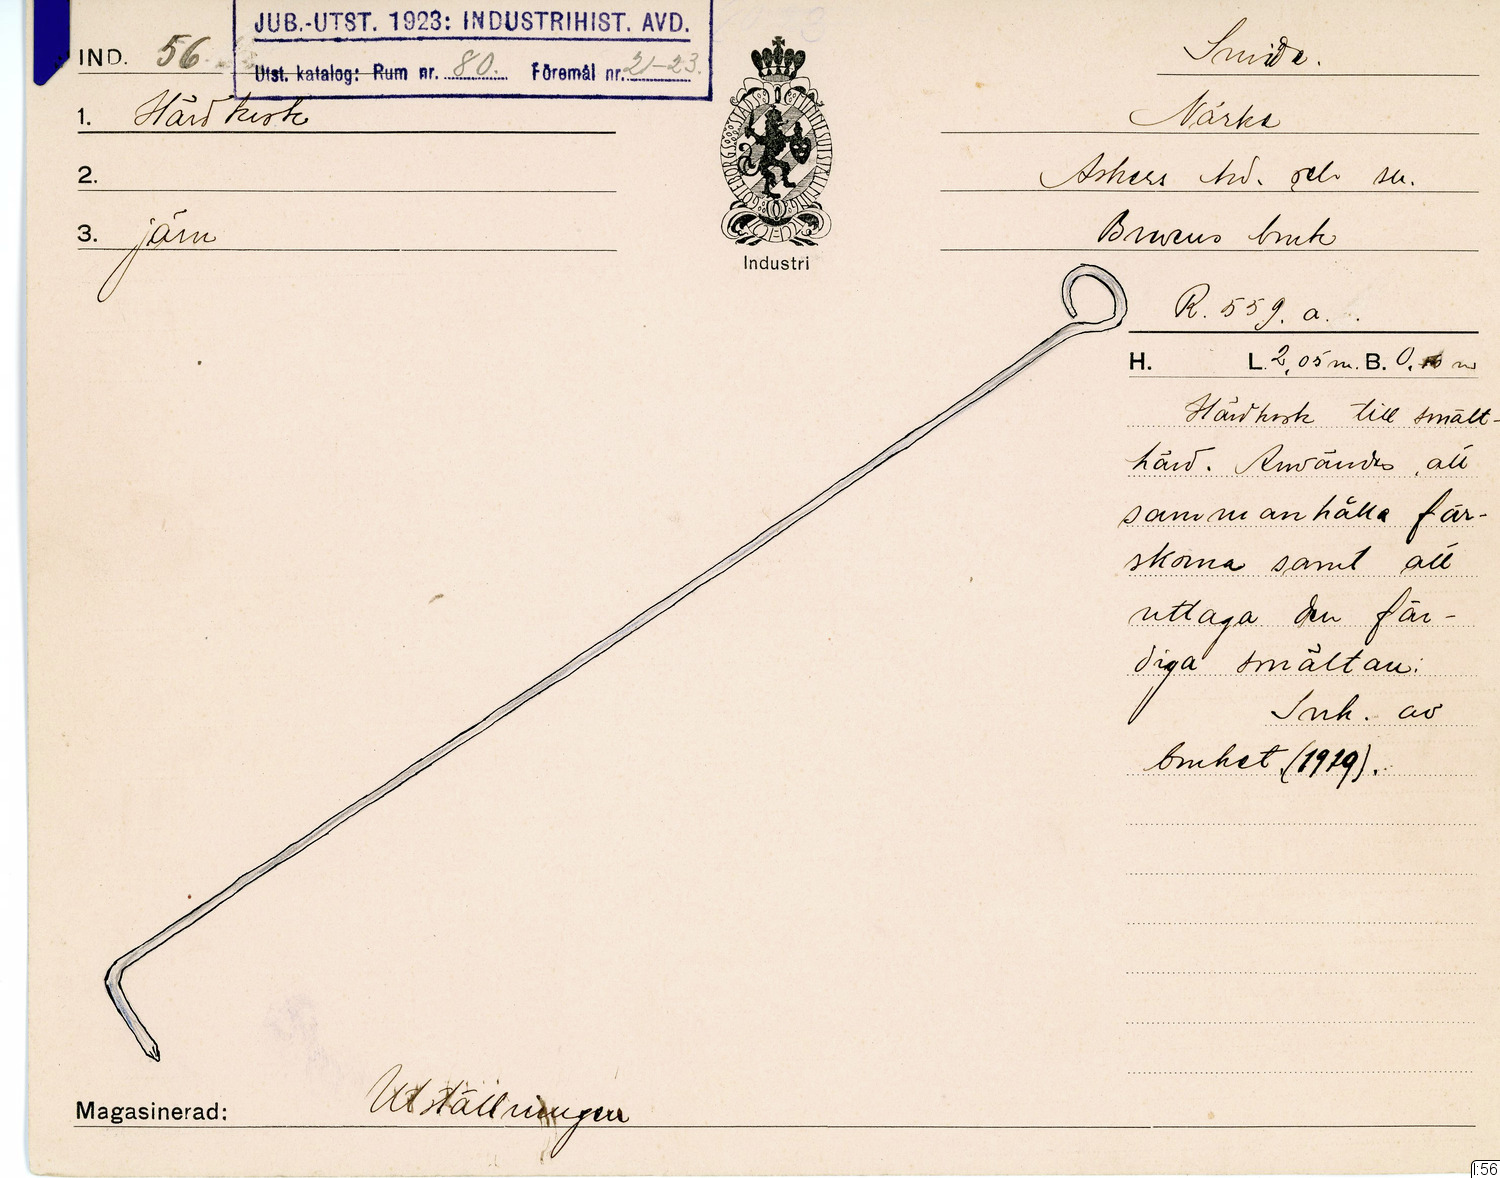 JUB.-UTST. 1923: INDUSTRIHIST. AVD.
Utst. katalog: Rum nr. 80. Föremål nr. 21-23.
IND. 56
1. Härdkrok
2.
3. järn
GÖTEBORGS STADS MINNESUTSTÄLLNING
Industri
Smide.
Närke
Askers hd. och sn.
Brevens bruk
R. 559. a.
H. L. 2,05 m. B. 0, m
Härdkrok till smält-
härd. Användes att
sammanhålla fär-
skorna samt att
uttaga den fär-
diga smältan.
Ink. av
bruket (1919).
Magasinerad: Utställningen
I:56